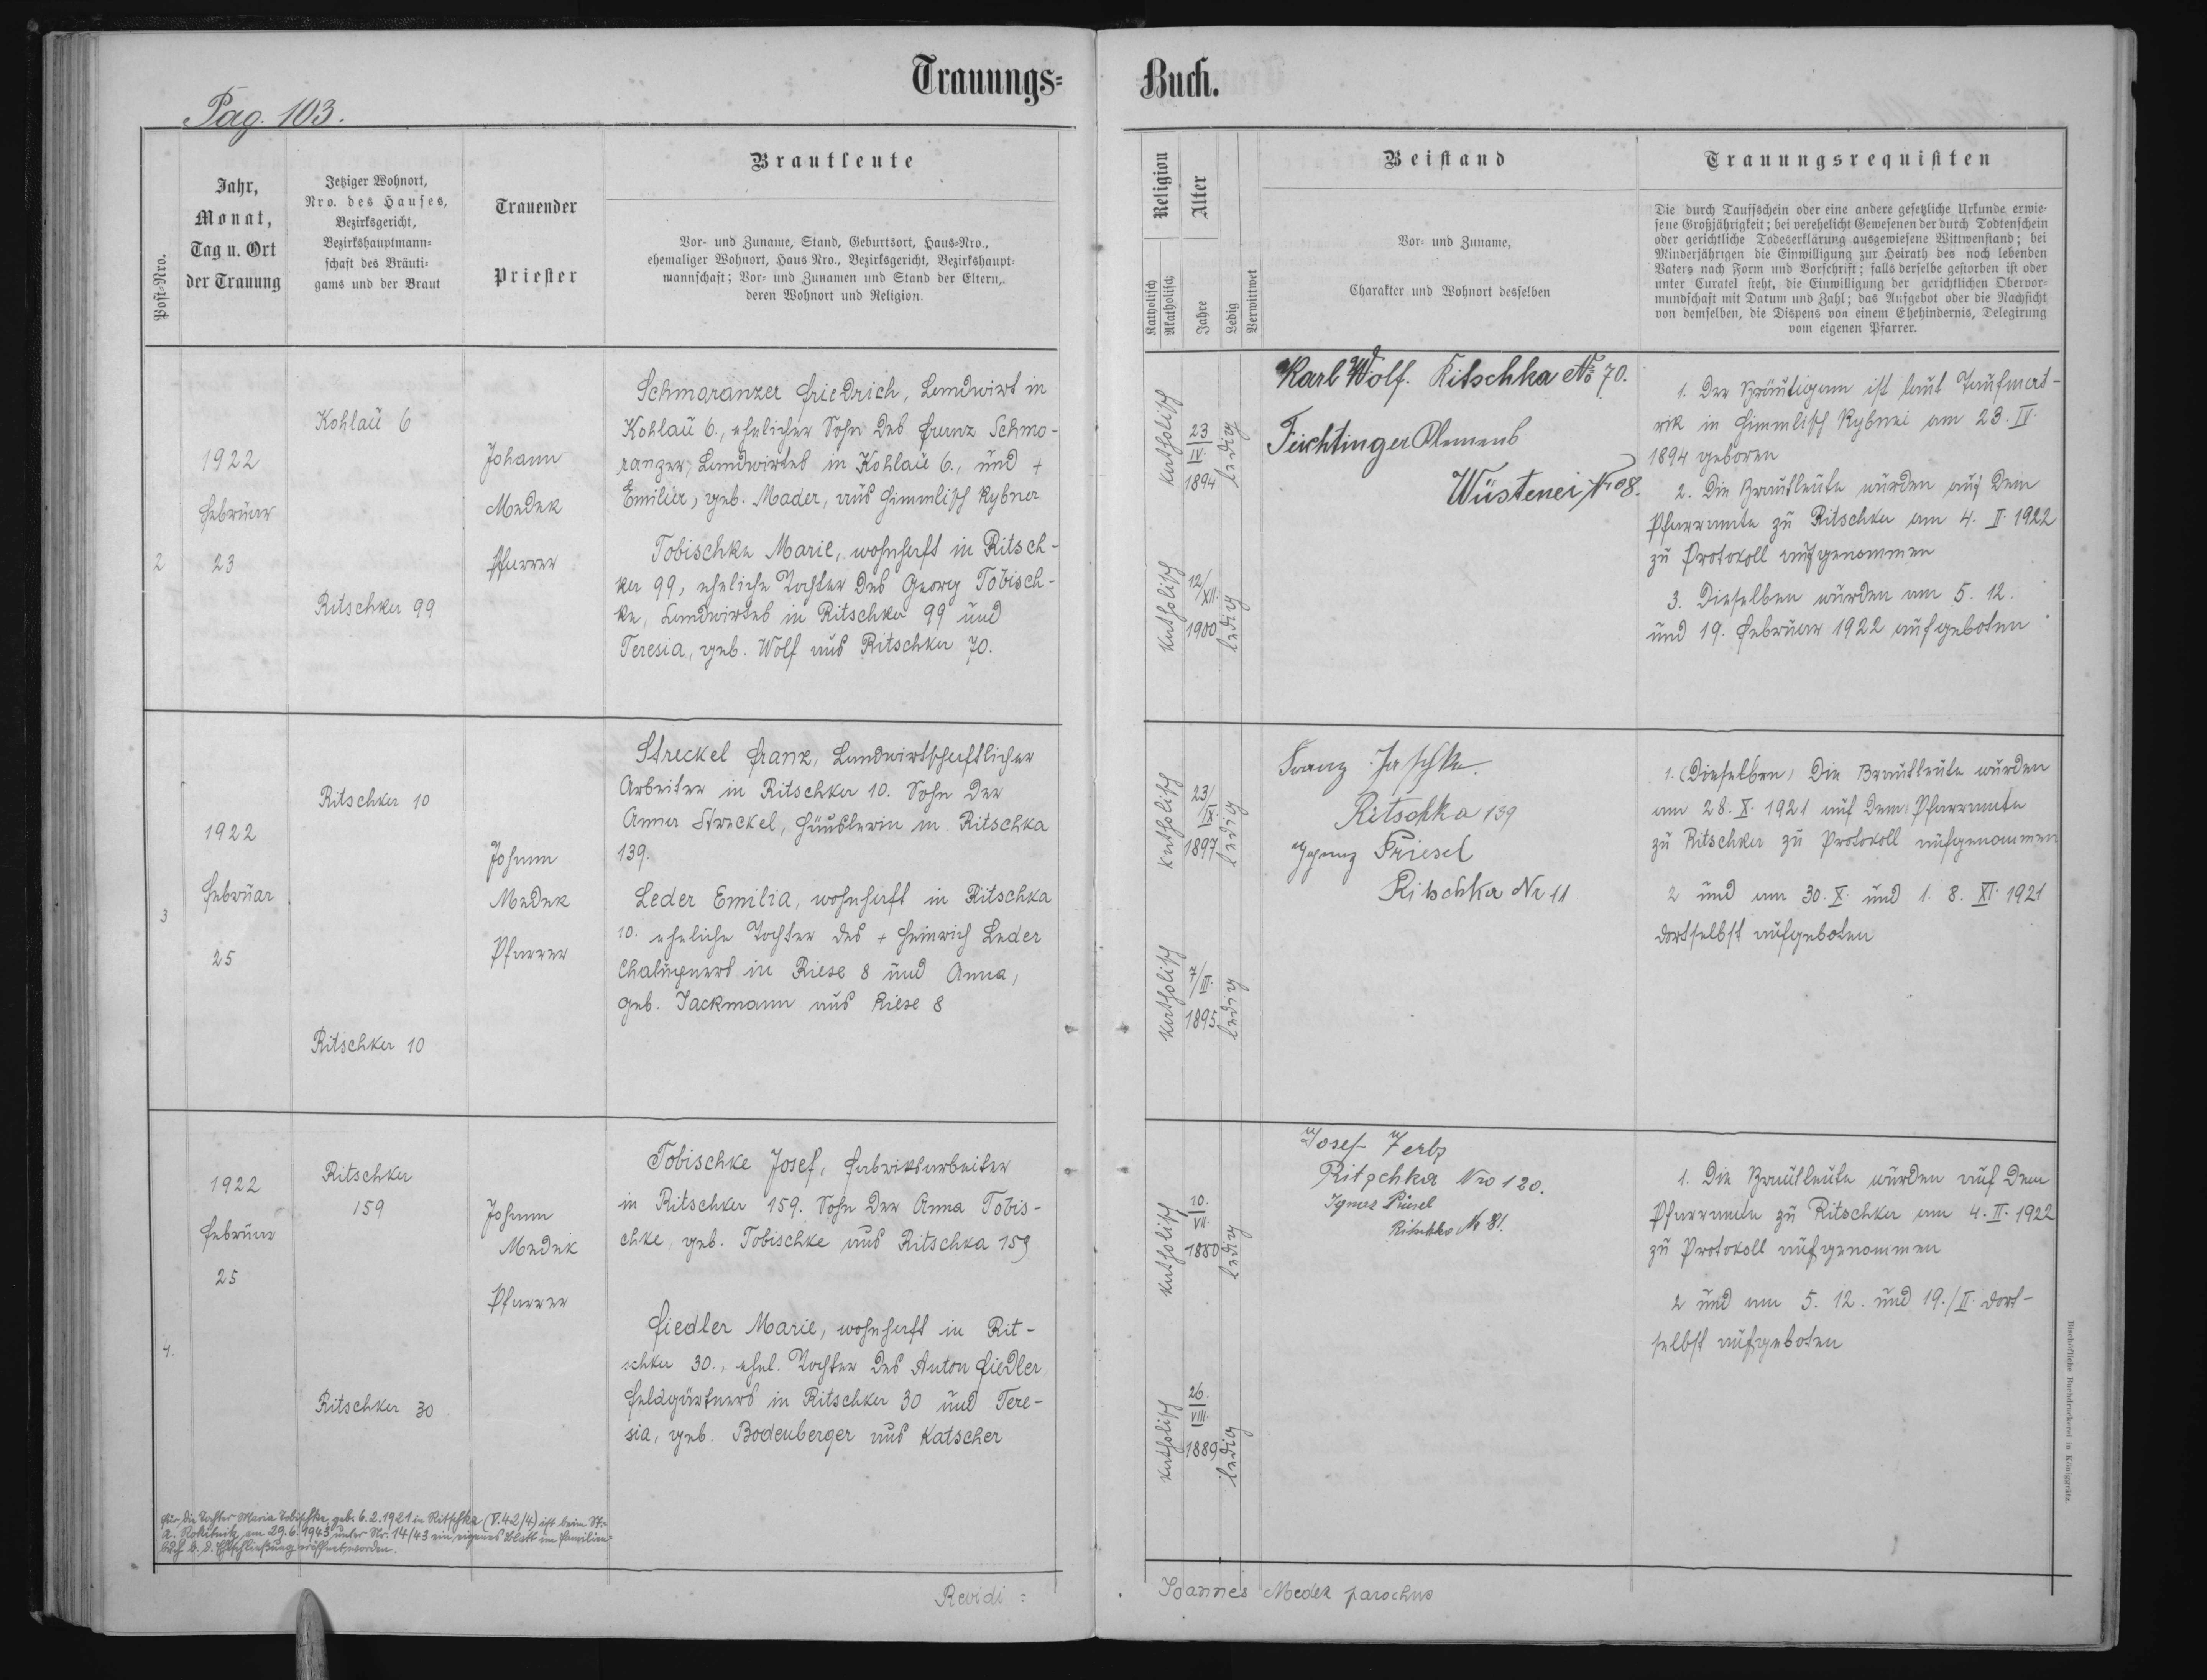 Trauungs=
Buch.
Pag. 103.
Post=Nro.
Jahr,
Monat,
Tag u. Ort
der Trauung
Jetziger Wohnort,
Nro. des Hauses,
Bezirksgericht,
Bezirkshauptmann=
schaft des Bräuti=
gams und der Braut
Trauender
Priester
Brautleute
Vor= und Zuname, Stand, Geburtsort, Haus=Nro.,
ehemaliger Wohnort, Haus Nro., Bezirksgericht, Bezirkshaupt=
mannschaft; Vor= und Zunamen und Stand der Eltern,
deren Wohnort und Religion.
Religion
Katholisch
Akatholisch
Alter
Jahre
Ledig
Verwittwet
Beistand
Vor= und Zuname,
Charakter und Wohnort desselben
Trauungsrequisiten
Die durch Taufschein oder eine andere gesetzliche Urkunde erwie=
sene Großjährigkeit; bei verehelicht Gewesenen der durch Todtenschein
oder gerichtliche Todeserklärung ausgewiesene Wittwenstand; bei
Minderjährigen die Einwilligung zur Heirath des noch lebenden
Vaters nach Form und Vorschrift; falls derselbe gestorben ist oder
unter Curatel steht, die Einwilligung der gerichtlichen Obervor=
mundschaft mit Datum und Zahl; das Aufgebot oder die Nachsicht
von demselben, die Dispens von einem Ehehindernis, Delegirung
vom eigenen Pfarrer.
2
1922
Februar
23
Kohlau 6
Ritschka 99
Johann
Medek
Pfarrer
Schmoranzer Friedrich, Landwirt in
Kohlau 6., ehelicher Sohn des Franz Schmo-
ranzer, Landwirtes in Kohlau 6., und +
Emilia, geb. Mader, aus Himmlisch Rybnei
Tobischka Marie, wohnhaft in Ritsch-
ka 99, eheliche Tochter des Georg Tobisch-
ke, Landwirtes in Ritschka 99 und
Teresia, geb. Wolf aus Ritschka 70.
katholisch
23
IV.
1894
ledig
katholisch
12/
XII.
1900
ledig
Karl Wolf. Ritschka No 70.
Feichtinger Klemens
Wüstenei No 8.
1. Der Bräutigam ist laut Taufmat-
rik in Himmlisch Rybnei am 23. IV.
1894 geboren
2. Die Brautleute wurden auf dem
Pfarramte zu Ritschka am 4. II. 1922
zu Protokoll aufgenommen
3. Dieselben wurden am 5. 12.
und 19. Februar 1922 aufgeboten
3
1922
Februar
25
Ritschka 10
Ritschka 10
Johann
Medek
Pfarrer
Streckel Franz, Landwirtschaftlicher
Arbeiter in Ritschka 10. Sohn der
Anna Streckel, Häuslerin in Ritschka
139.
Leder Emilia, wohnhaft in Ritschka
10. eheliche Tochter des + Heinrich Leder
Chalupners in Riese 8 und Anna,
geb. Jackmann aus Riese 8
katholisch
23/
IX.
1897
ledig
katholisch
7/
III.
1895
ledig
Franz Jaschke.
Ritschka 139
Ignaz Priesel
Ritschka Nr 11
1. (Dieselben) Die Brautleute wurden
am 28. X. 1921 auf dem Pfarramte
zu Ritschka zu Protokoll aufgenommen
2 und am 30. X. und 1. 8. XI. 1921
dortselbst aufgeboten
4.
1922
Februar
25
Ritschka
159
Ritschka 30
Johann
Medek
Pfarrer
Tobischke Josef, Fabriksarbeiter
in Ritschka 159. Sohn der Anna Tobis-
chke, geb. Tobischke aus Ritschka 159
Fiedler Marie, wohnhaft in Rit-
schka 30., ehel. Tochter des Anton Fiedler
Feldgärtners in Ritschka 30 und Tere-
sia, geb. Bodenberger aus Katscher
katholisch
10.
VII.
1880
ledig
katholisch
26.
VIII.
1889
ledig
Josef Zerbs
Ritschka Nro 120.
Ignaz Priesel
Ritschka № 81.
1. Die Brautleute wurden auf dem
Pfarramte zu Ritschka am 4. II. 1922
zu Protokoll aufgenommen
2 und am 5. 12. und 19./II. dort-
selbst aufgeboten
Für die Tochter Maria Tobischke, geb. 6.2.1921 in Ritschka (V.42/4) ist beim St.-
A. Rokitnitz am 29.6.1943 unter Nr. 14/43 ein eigenes Blatt im Familien-
buch b. d. Eheschließung eröffnet worden.
Revidi:
Joannes Medek parochus
Bischöfliche Buchdruckerei in Königgrätz.